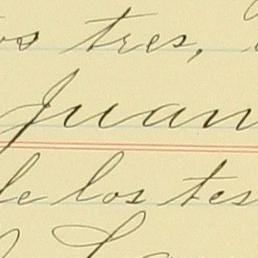 os tres,
Juan
de los tes